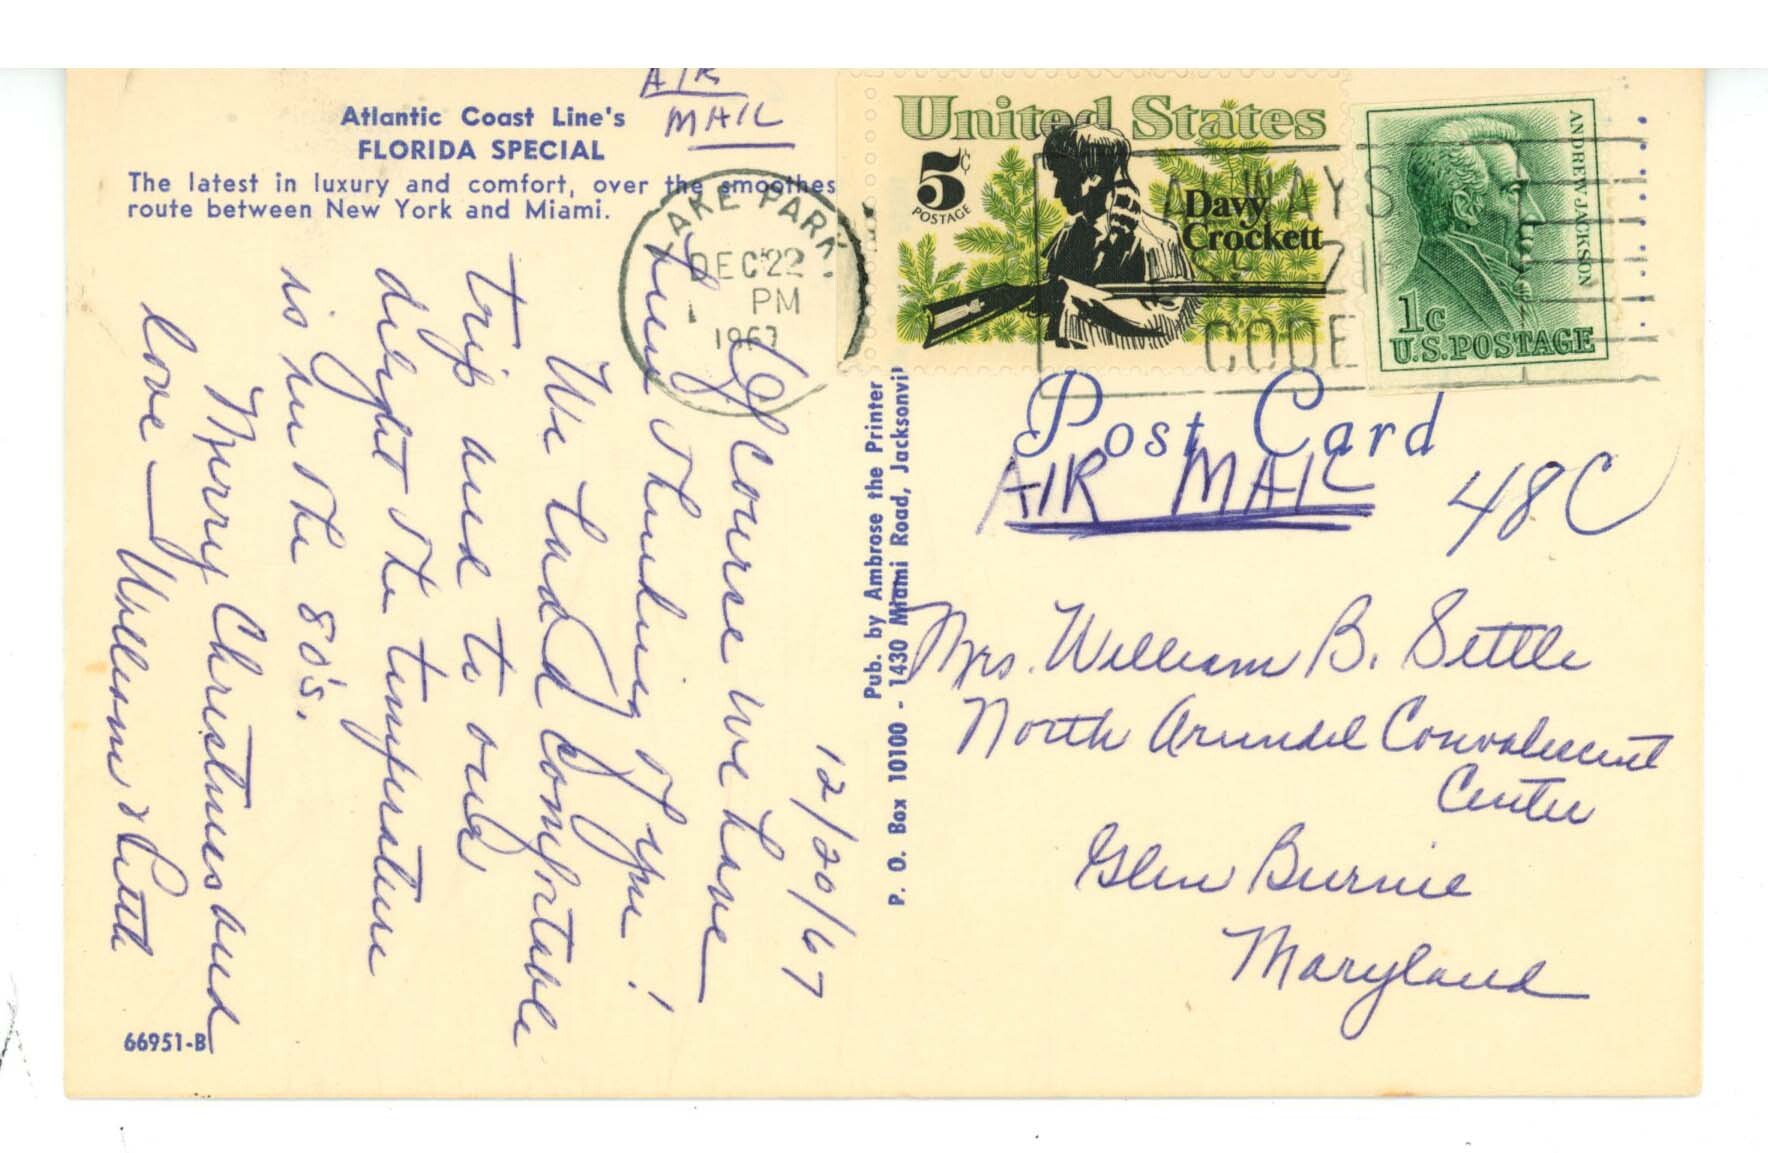 AIR
MAIL
Atlantic Coast Line's
FLORIDA SPECIAL
The latest in luxury and comfort, over the smoothes
route between New York and Miami.
LAKE PARK
DEC 22
PM
1967
United States
5c
POSTAGE
Davy
Crockett
ALWAYS
USE ZIP
CODE
ANDREW JACKSON
1c
U.S.POSTAGE
Post Card
AIR MAIL
48C
12/20/67
Of course we have
been thinking of you!
We had a comfortable
trip and to our
delight the temperature
is in the 80's.
Merry Christmas and
love — William &
Pub. by Ambrose the Printer
P. O. Box 10100 - 1430 Miami Road, Jacksonvi
Mrs. William B. Settle
North Arundel Convalescent
Center
Glen Burnie
Maryland
66951-B